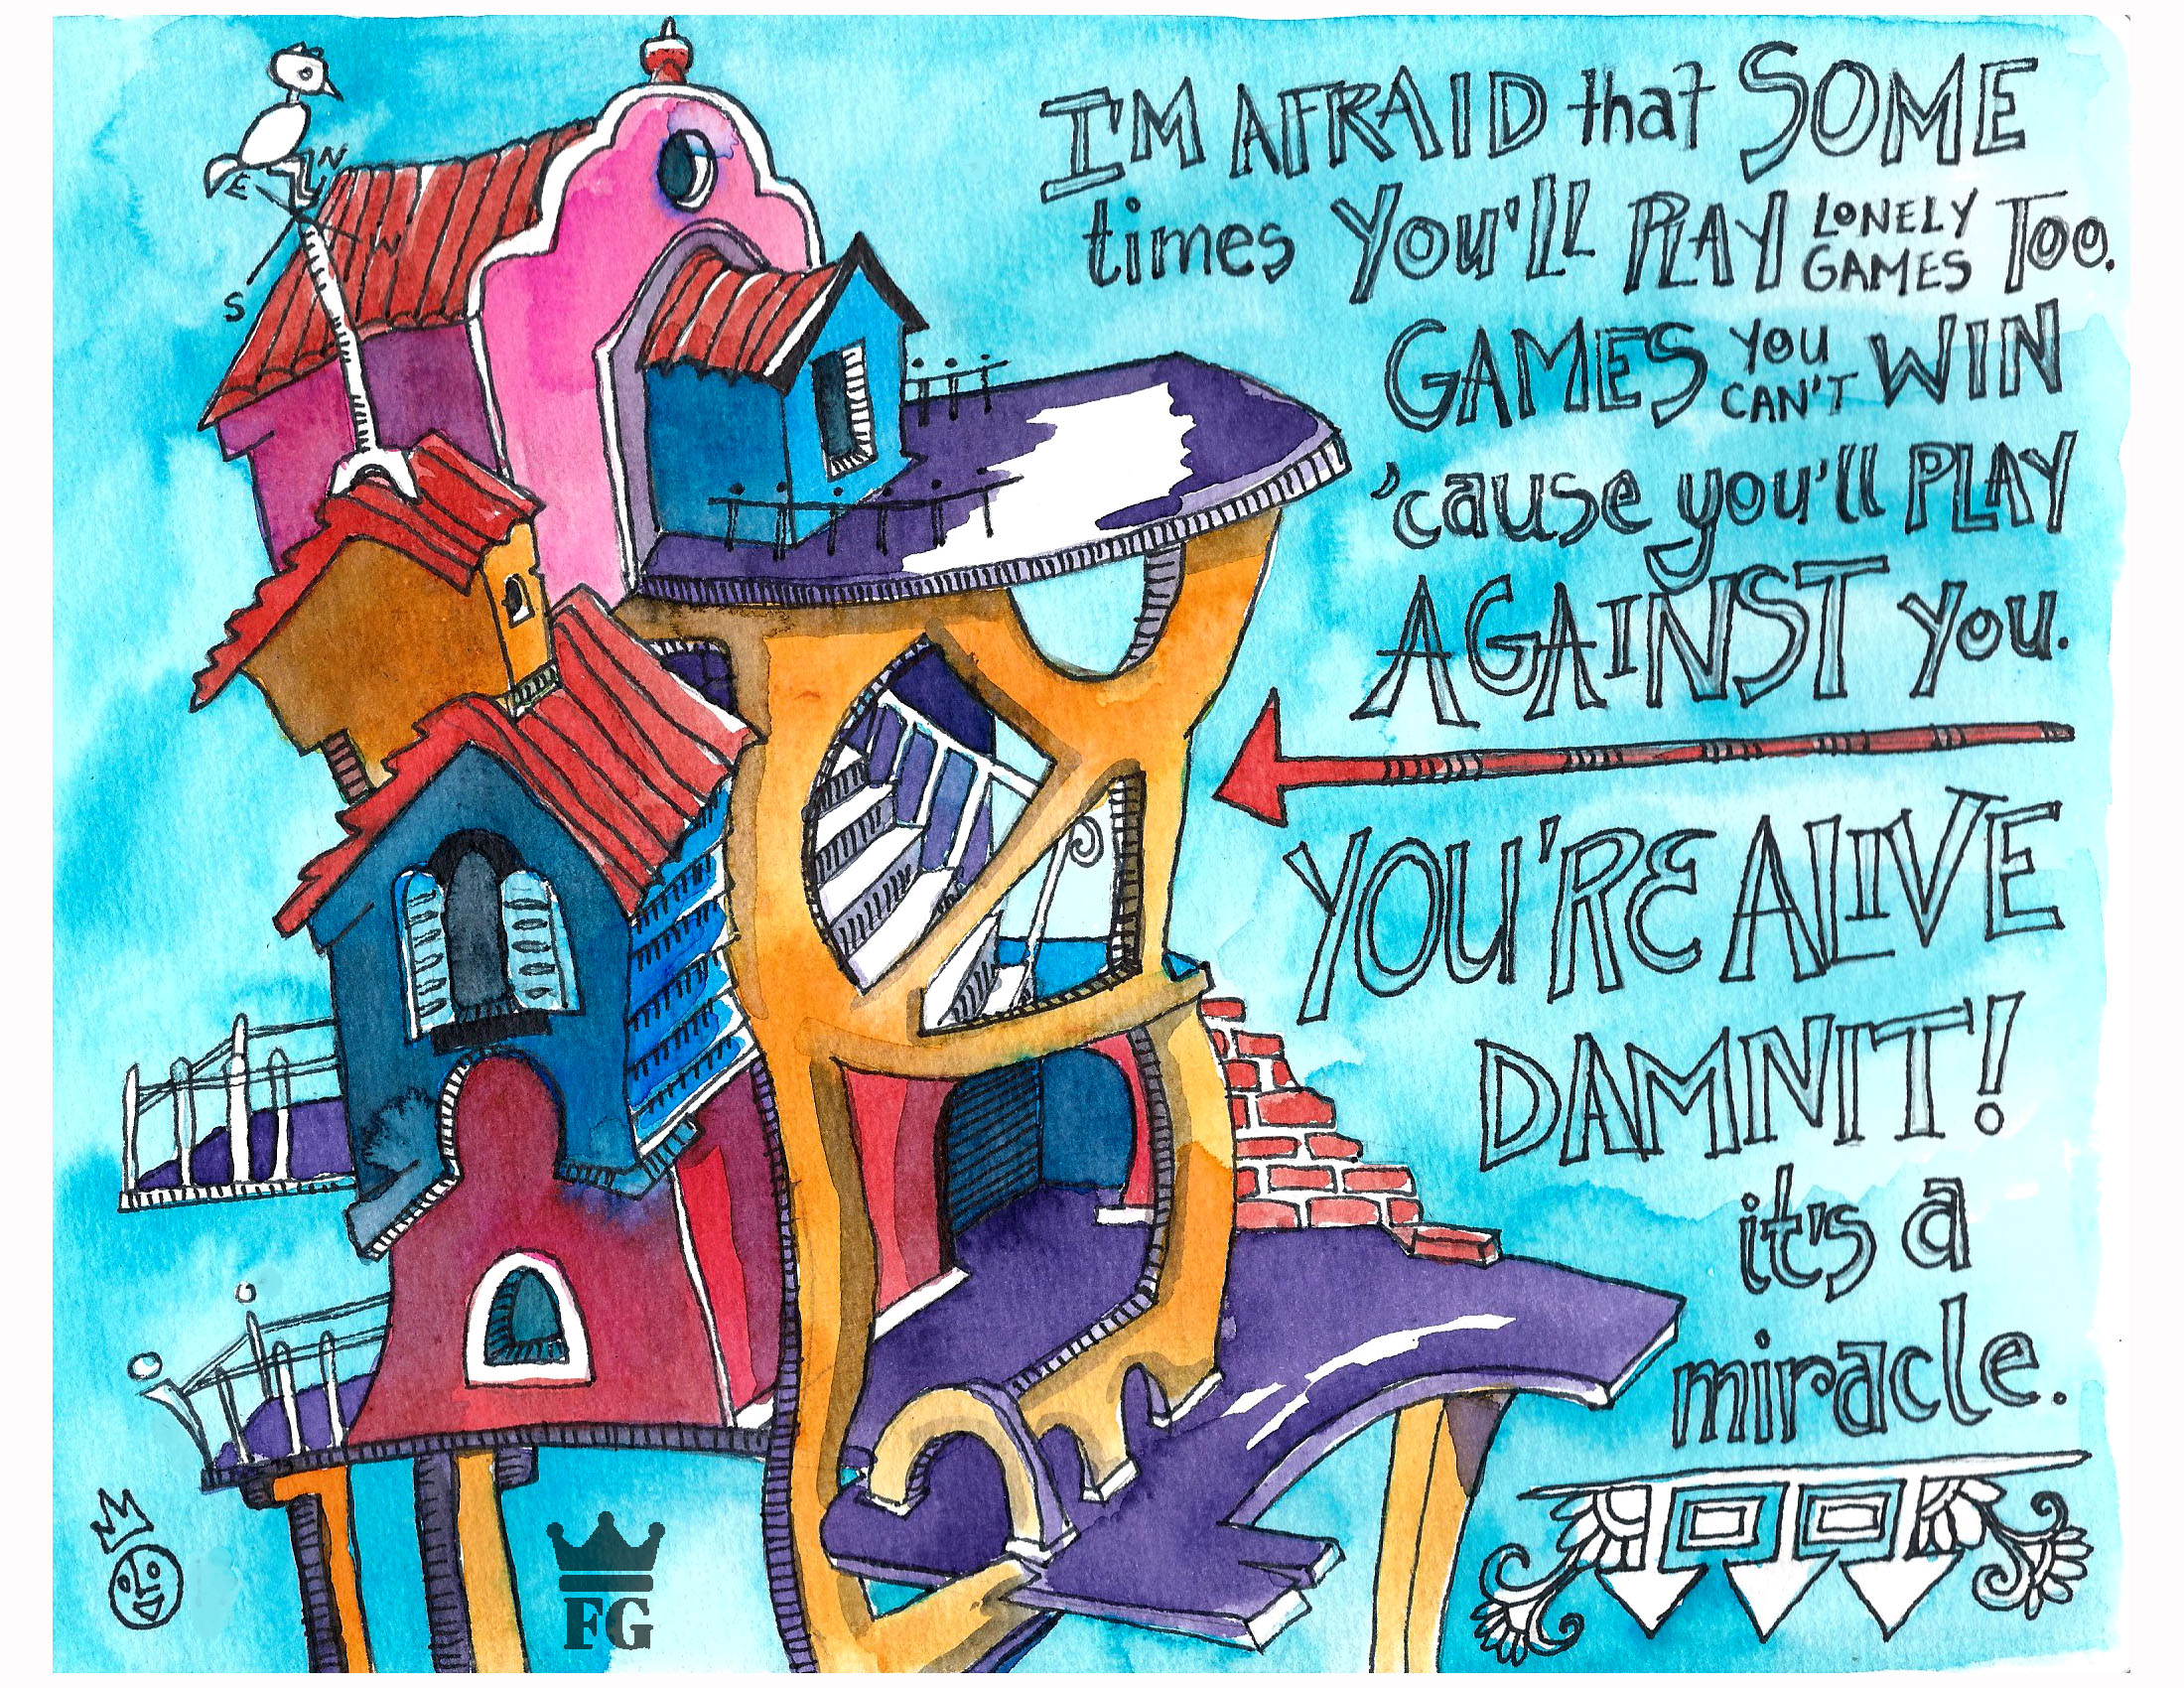 I'M AFRAID that SOME
times YOU'LL PLAY LONELY GAMES TOO.
GAMES YOU CAN'T WIN
'cause you'll PLAY
AGAINST You.
YOU'RE ALIVE
DAMNIT!
it's a
miracle.
N
E
W
S
FG